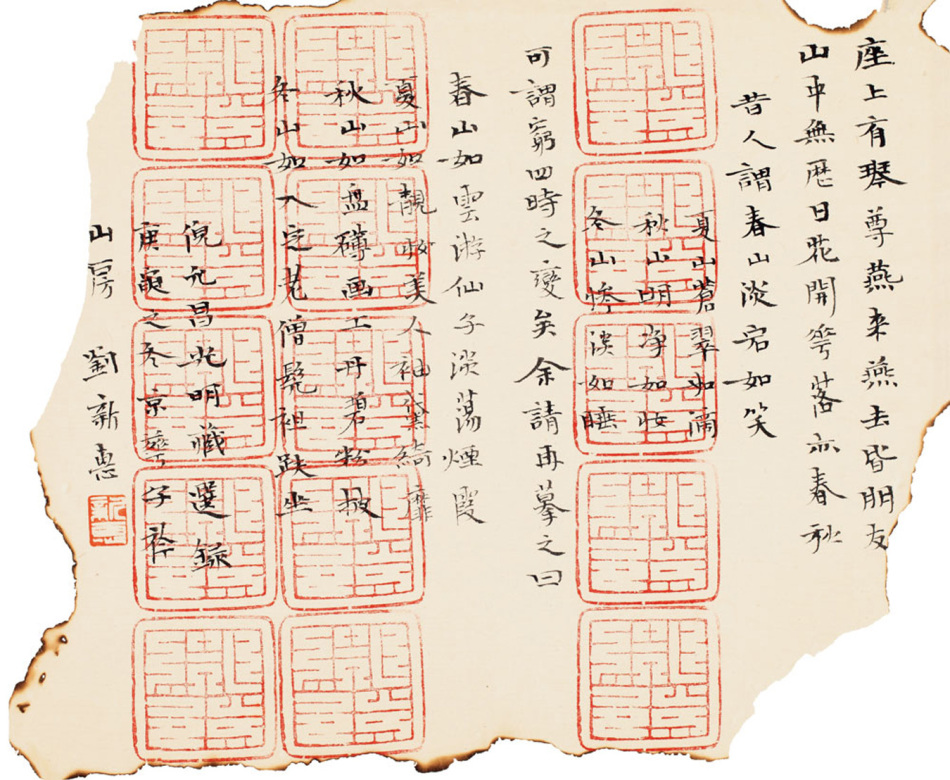 座上有琴尊燕来燕去皆朋友
山中無歷日花開落亦春秋
昔人謂春山淡宕如笑
夏山蒼翠如滴
秋山明净如妝
冬山惨淡如睡
可謂窮四時之變矣余請再摹之曰
春山如雲游仙子淡蕩煙霞
夏山如靚妝美人袖黛綺靡
秋山如盘礴画工丹碧粉披
冬山如入定老僧髡袒趺坐
倪允昌光明藏選錄
庚寅之冬京華
山房 劉新惠